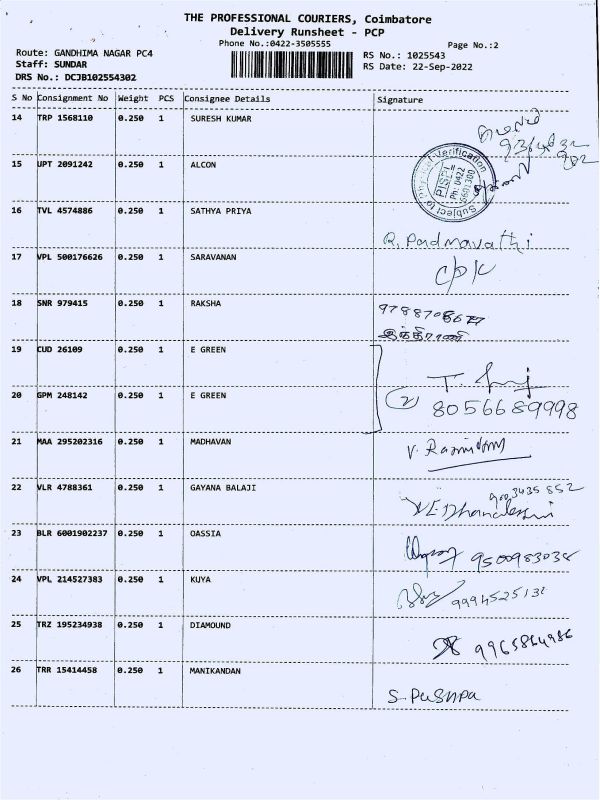 THE PROFESSIONAL COURIERS, Coimbatore
Delivery Runsheet - PCP
Phone No.:0422-3505555
Page No.:2
Route: GANDHIMA NAGAR PC4
Staff: SUNDAR
DRS No.: DCJB102554302
RS No.: 1025543
RS Date: 22-Sep-2022
S No Consignment No Weight PCS Consignee Details Signature
14 TRP 1568110 0.250 1 SURESH KUMAR
15 UPT 2091242 0.250 1 ALCON
Subject to Physical Verification
Ph: 0422
16 TVL 4574886 0.250 1 SATHYA PRIYA
R. Padmavathi
17 VPL 500176626 0.250 1 SARAVANAN
18 SNR 979415 0.250 1 RAKSHA
19 CUD 26109 0.250 1 E GREEN
20 GPM 248142 0.250 1 E GREEN
2 8056689998
21 MAA 295202316 0.250 1 MADHAVAN
22 VLR 4788361 0.250 1 GAYANA BALAJI
23 BLR 6001902237 0.250 1 OASSIA
9500983038
24 VPL 214527383 0.250 1 KUYA
25 TRZ 195234938 0.250 1 DIAMOUND
26 TRR 15414458 0.250 1 MANIKANDAN
S. Pushpa